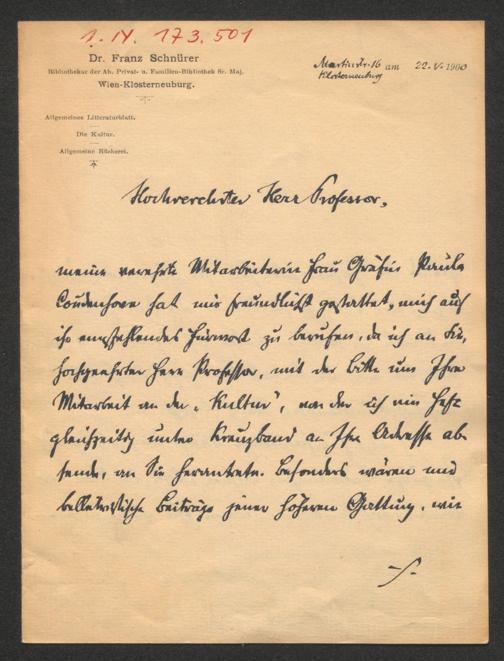 1. IV. 173.501
Dr. Franz Schnürer
Bibliothekar der Ah. Privat- u. Familien-Bibliothek Sr. Maj.
Wien-Klosterneuburg.
Martinstr. 16 am 22. V. 1900
Klosterneuburg
Allgemeines Litteraturblatt.
Die Kultur.
Allgemeine Bücherei.
Hochverehrter Herr Professor,
meine verehrte Mitarbeiterin Frau Gräfin Paula
Coudenhove hat mir freundlichst gestattet, mich auf
ihr empfehlendes Fürwort zu berufen, da ich an Sie,
hochgeehrter Herr Professor, mit der Bitte um Ihre
Mitarbeit an der „Kultur", von der ich ein Heft
gleichzeitig unter Kreuzband an Ihre Adresse ab
sende, an Sie herantrete. Besonders wären uns
belletristische Beiträge jener höheren Gattung, wie